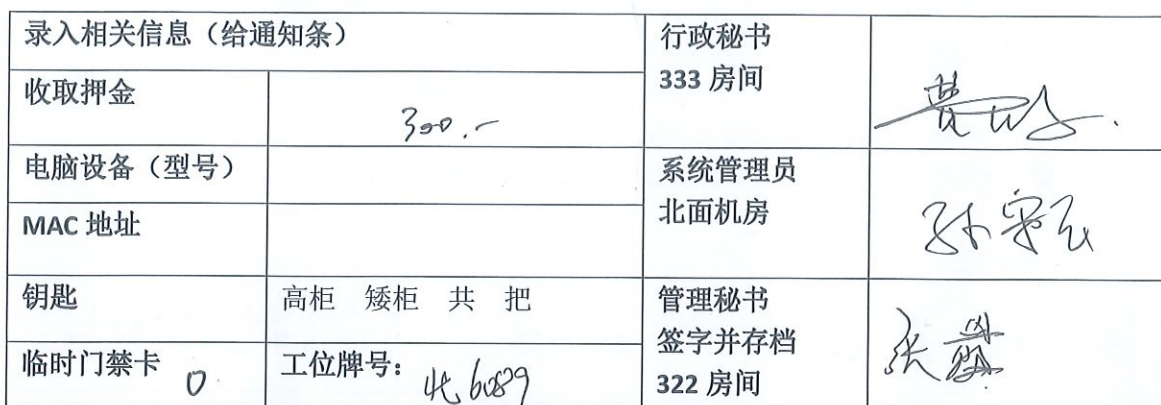 录入相关信息（给通知条）
行政秘书
333 房间
收取押金
300.-
电脑设备（型号）
系统管理员
北面机房
MAC 地址
钥匙
高柜 矮柜 共 把
管理秘书
签字并存档
322 房间
临时门禁卡 0
工位牌号： 北6089
张